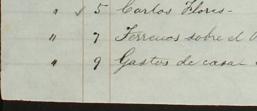 " ✓ 5 Carlos Flores -
" 7 Terrenos sobre el
" 9 Gastos de casa